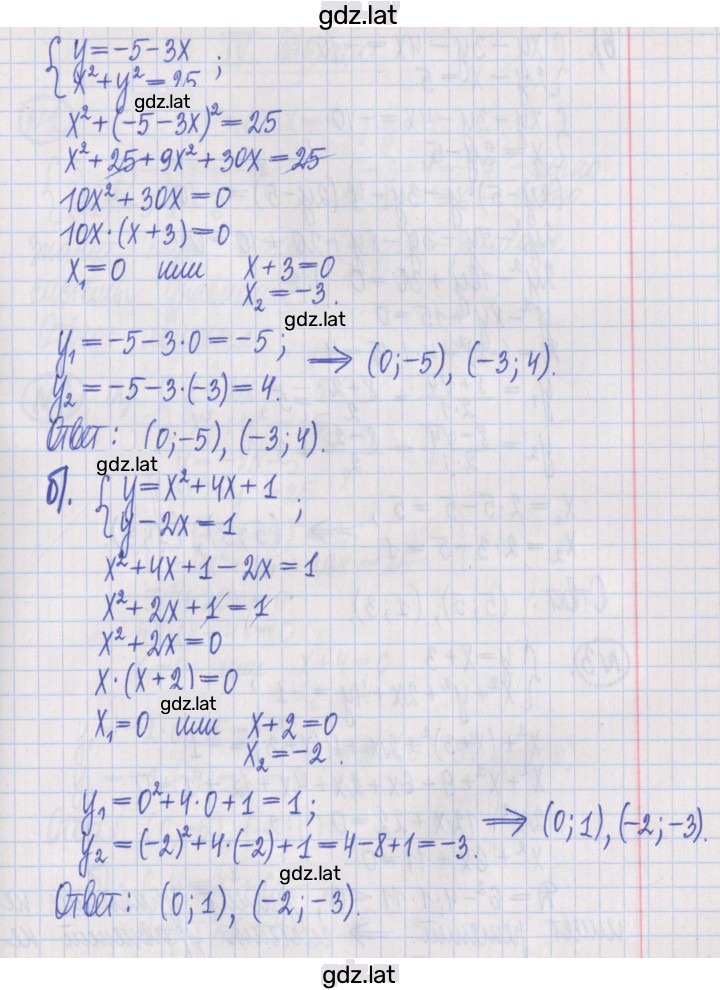 gdz.lat
{ y = -5 - 3x
{ x² + y² = 25 ;
gdz.lat
x² + (-5 - 3x)² = 25
x² + 25 + 9x² + 30x = 25
10x² + 30x = 0
10x · (x + 3) = 0
x₁ = 0 или x + 3 = 0
x₂ = -3.
gdz.lat
y₁ = -5 - 3 · 0 = -5 ;
y₂ = -5 - 3 · (-3) = 4.
⟹ (0; -5), (-3; 4).
Ответ: (0; -5), (-3; 4).
gdz.lat
б). { y = x² + 4x + 1
{ y - 2x = 1 ;
x² + 4x + 1 - 2x = 1
x² + 2x + 1 = 1
x² + 2x = 0
x · (x + 2) = 0
gdz.lat
x₁ = 0 или x + 2 = 0
x₂ = -2.
y₁ = 0² + 4 · 0 + 1 = 1 ;
y₂ = (-2)² + 4 · (-2) + 1 = 4 - 8 + 1 = -3.
⟹ (0; 1), (-2; -3).
gdz.lat
Ответ: (0; 1), (-2; -3).
gdz.lat